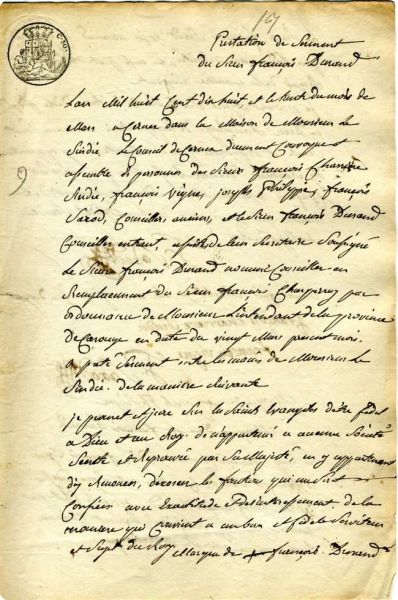 157
Prestation de Serment
du Sieur françois Durand
L'an Mil huit Cent dix huit et le trente du mois de
Mars a Cernex dans la Maison de Monsieur le
Sindic. Le Conseil de Cernex duement Convoqué et
assemblé en personnes des Sieurs françois
Sindic, françois Vigne, joseph Philippe, françois
Conseillers anciens, et le Sieur françois Durand
Conseiller entrant, assistés de leur Secretaire Soussigné
Le Sieur françois Durand nommé Conseiller en
Remplacement du Sieur françois Chapperon par
ordonnance de Monsieur L'intendant de la province
de Carouge en date du vingt Mars present mois.
a prêté Serment entre les mains de Monsieur le
Sindic. de la maniere Suivante
je promet et jure Sur les Saints Evangiles d'être fidel
a Dieu et au Roy. de n'appartenir a aucune Société
Secrète et Reprouvée par Sa Majesté, en y appartenant
d'y Renoncer, d'exercer la fonction qui m'est
Confiée avec Exactitude et desinteressement. de la
maniere qui convient a un bon et fidele Serviteur
et Sujet du Roy. Marque de + françois Durand